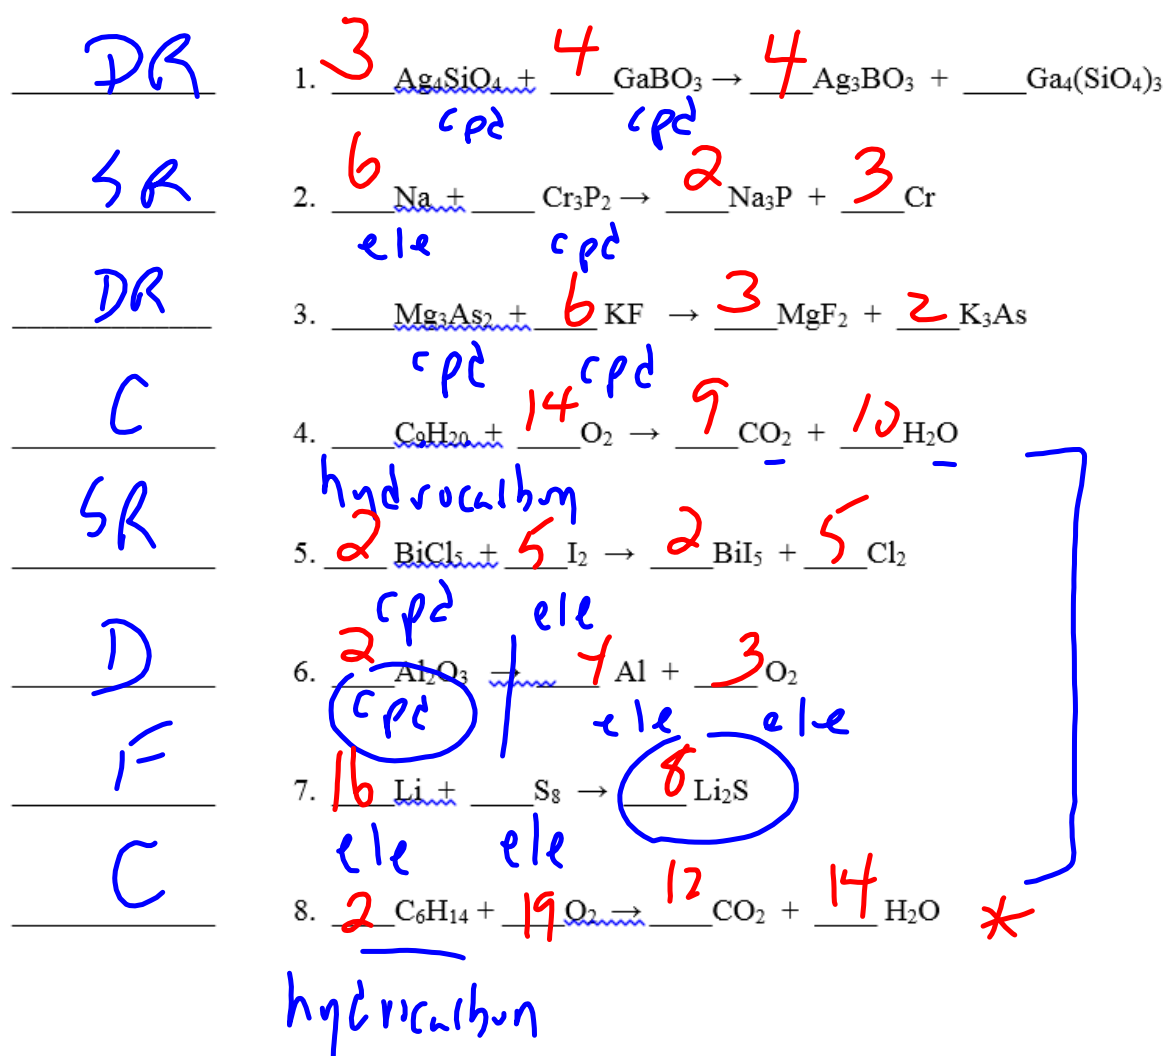 DR 1. 3 Ag₄SiO₄ + 4 GaBO₃ → 4 Ag₃BO₃ + ____ Ga₄(SiO₄)₃
cpd cpd
SR 2. 6 Na + ____ Cr₃P₂ → 2 Na₃P + 3 Cr
ele cpd
DR 3. ____ Mg₃As₂ + 6 KF → 3 MgF₂ + 2 K₃As
cpd cpd
C 4. ____ C₉H₂₀ + 14 O₂ → 9 CO₂ + 10 H₂O
hydrocarbon
SR 5. 2 BiCl₅ + 5 I₂ → 2 BiI₅ + 5 Cl₂
cpd ele
D 6. 2 Al₂O₃ → 4 Al + 3 O₂
cpd ele ele
F 7. 16 Li + ____ S₈ → 8 Li₂S
ele ele
C 8. 2 C₆H₁₄ + 19 O₂ → 12 CO₂ + 14 H₂O *
hydrocarbon